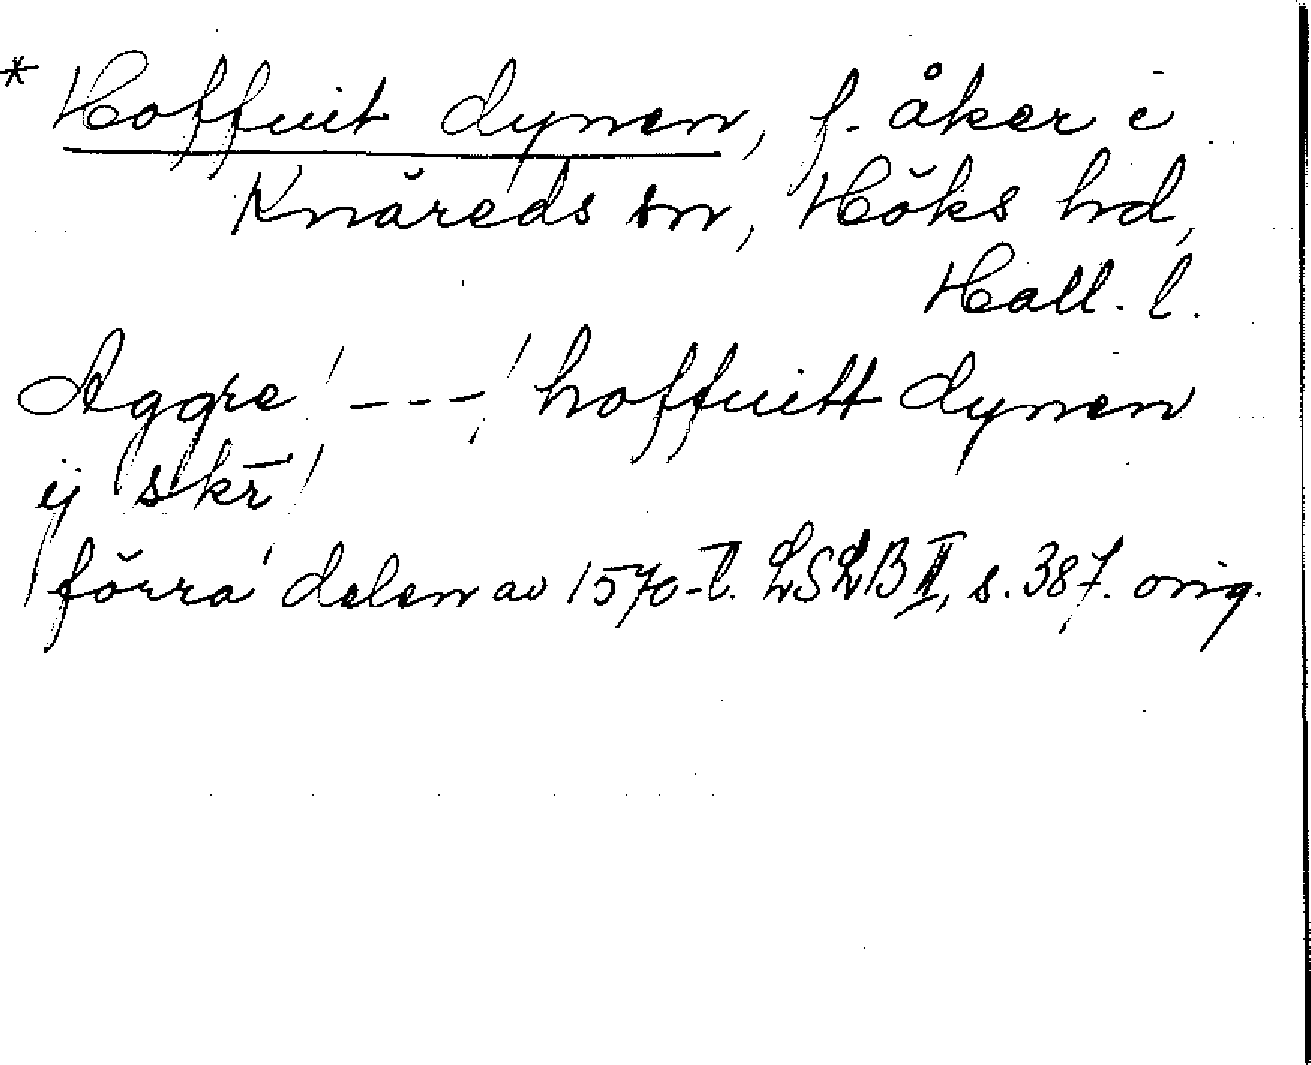 * Hoffuit dynen, f. åker i
Knäreds sn, Höks hd,
Hall. l.
Aggre / --- / hoffuitt dynen
ij skr̄ /
förra delen av 1570-t. LSLB II, s. 387. orig.